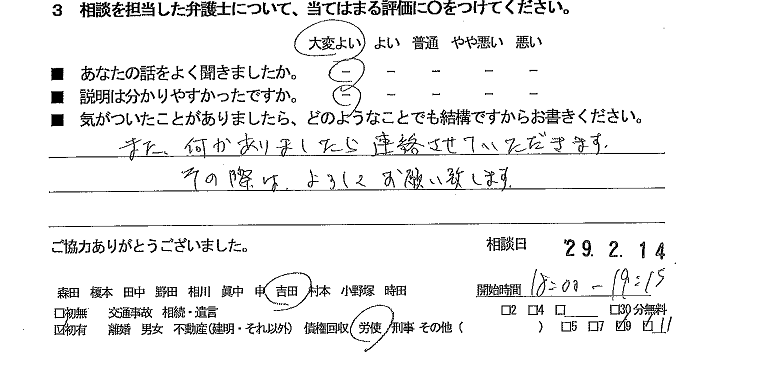 3 相談を担当した弁護士について、当てはまる評価に○をつけてください。
大変よい よい 普通 やや悪い 悪い
■ あなたの話をよく聞きましたか。 － － － － －
■ 説明は分かりやすかったですか。 － － － － －
■ 気がついたことがありましたら、どのようなことでも結構ですからお書きください。
また、何かありましたら連絡させていただきます。
その際は、よろしくお願い致します。
ご協力ありがとうございました。
相談日 '29. 2. 14
森田 榎本 田中 野田 相川 眞中 申 吉田 村本 小野塚 時田
開始時間 18:00 - 19:15
□初無 交通事故 相続・遺言 □2 □4 □ □30分無料
☑初有 離婚 男女 不動産(建明・それ以外) 債権回収 労使 刑事 その他 ( ) □5 □7 ☑9 ☑11